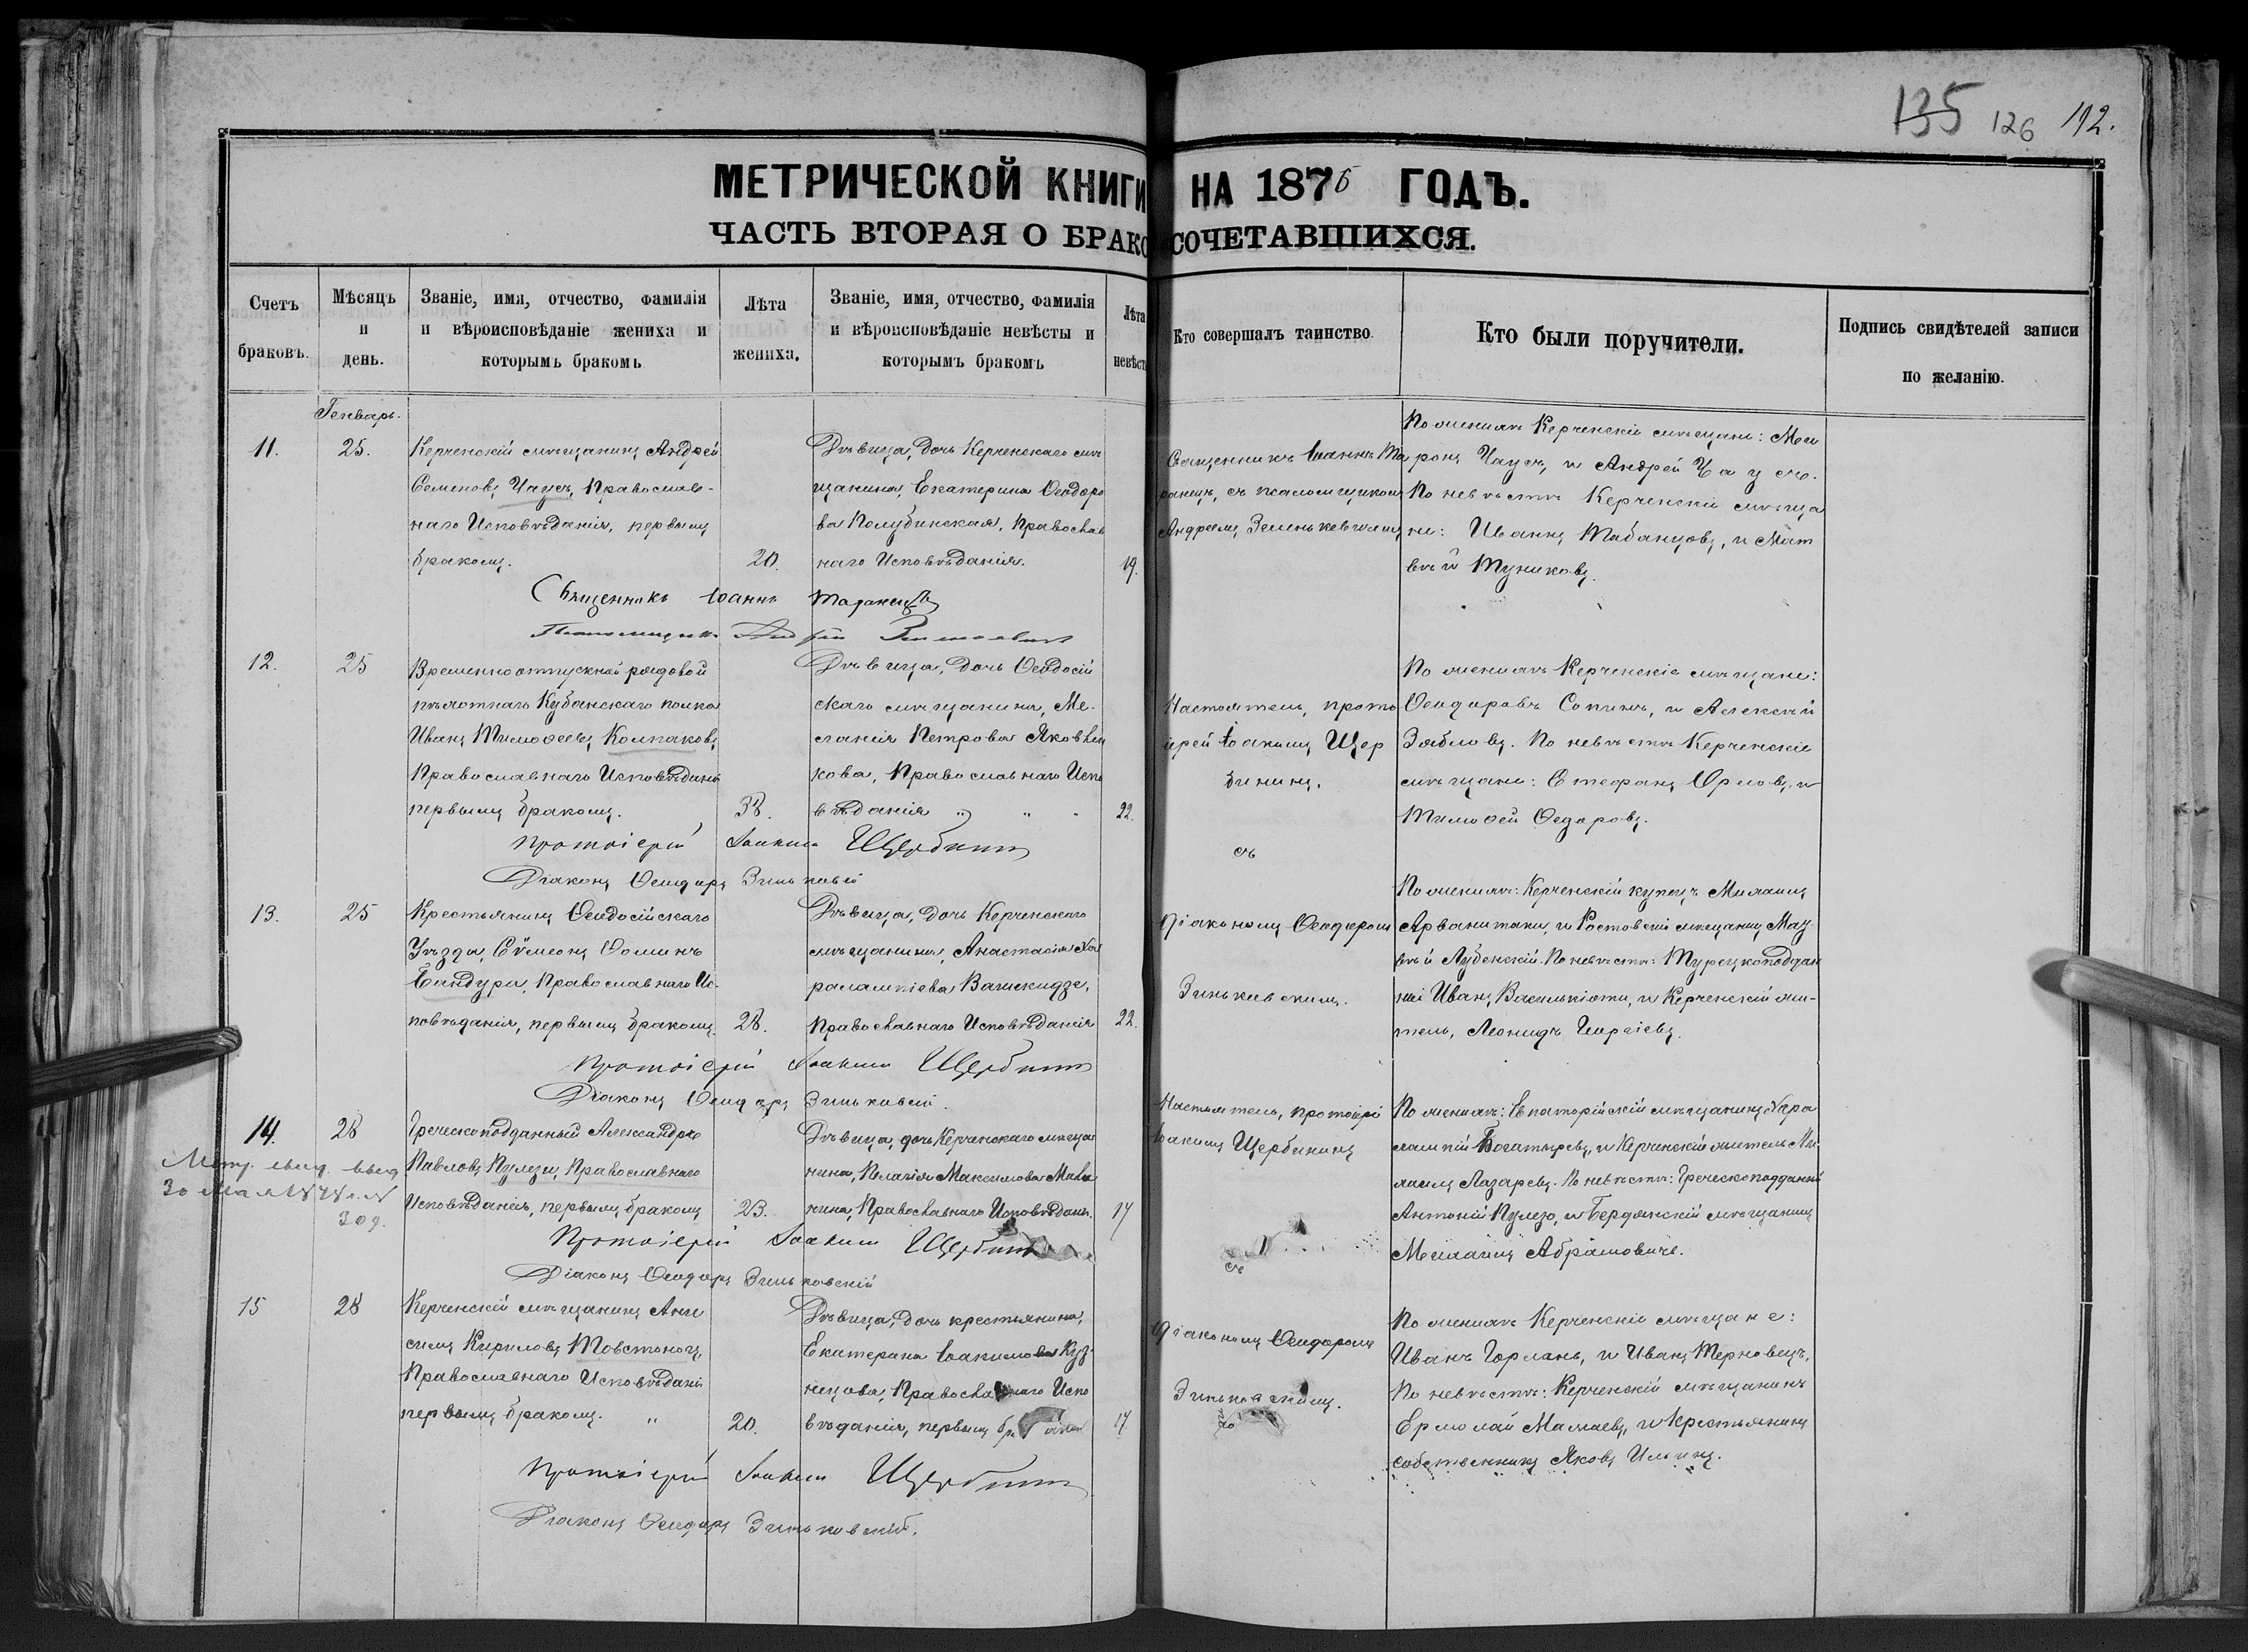 135 126 192.
МЕТРИЧЕСКОЙ КНИГИ НА 1876 ГОДЪ.
ЧАСТЬ ВТОРАЯ О БРАКОСОЧЕТАВШИХСЯ.
Счетъ браковъ.
Мѣсяцъ и день.
Званіе, имя, отчество, фамилія и вѣроисповѣданіе жениха и которымъ бракомъ
Лѣта жениха.
Званіе, имя, отчество, фамилія и вѣроисповѣданіе невѣсты и которымъ бракомъ
Лѣта невѣст
Кто совершалъ таинство.
Кто были поручители.
Подпись свидѣтелей записи по желанію.
Генварь.
11.
25.
Керченскій мѣщанинъ Андрей
Семеновъ Чаусъ, Православ-
наго Исповѣданія, первымъ
бракомъ.
20.
Дѣвица, дочь Керченскаго мѣ
щанина, Екатерина Ѳеодоро
ва Полубинская, Православ
наго Исповѣданія.
19.
Священникъ Іоаннъ Та
ранецъ, съ псаломщикомъ
Андреемъ Зенькевичемъ
По женихѣ Керченскіе мѣщане: Ми
ронъ Чаусъ, и Андрей Чаусъ.
По невѣстѣ Керченскіе мѣща
не: Иванъ Табанцовъ, и Мат
вѣй Туниковъ.
Священникъ Іоаннъ Таранецъ
Псаломщикъ Андрей
12.
25
Временноотпускной рядовой
пѣхотнаго Кубанскаго полка
Иванъ Тимоѳеевъ Колпаковъ,
Православнаго Исповѣданія
первымъ бракомъ.
38.
Дѣвица, дочь Ѳеодосій
скаго мѣщанина, Ме-
ланія Петрова Яковлен
кова, Православнаго Испо
вѣданія " " "
22.
Настоятель, прото
іерей Іоакимъ Щер
бининъ.
По женихѣ Керченскіе мѣщане:
Сопинъ, и Алексѣй
Зябловъ. По невѣстѣ Керченскіе
мѣщане: Стефанъ Орловъ, и
Тимоѳей Ѳедоровъ.
Протоіерей Іоакимъ Щербининъ
Діаконъ Ѳеодоръ Зиньковскій
съ
13.
25
Крестьянинъ Ѳеодосійскаго
Уѣзда, Сѵмеонъ Ѳоминъ
Бандура, Православнаго Ис-
повѣданія, первымъ бракомъ.
28.
Дѣвица, дочь Керченскаго
мѣщанина, Анастасія Ха
ралампіева
Православнаго Исповѣданія
22.
діакономъ Ѳеодоромъ
Зиньковскимъ.
По женихѣ: Керченскій купецъ Михаилъ
Арванитаки, и Ростовскій мѣщанинъ Мат
вѣй Лубенскій. По невѣстѣ: Турецкоподдан
ный Иванъ Василькіоти, и Керченскій жи-
тель, Леонидъ Георгіевъ.
Протоіерей Іоакимъ Щербининъ
Діаконъ Ѳеодоръ Зиньковскій.
14.
28
Метр. свид. выд.
30 Мая 1878 г. №
309.
Греческоподданный Александръ
Павловъ Пулези, Православнаго
Исповѣданія, первымъ бракомъ
23.
Дѣвица, дочь Керченскаго мѣща
нина, Пелагія Максимова Мала
нина, Православнаго Исповѣданія.
17
Настоятель, протоіерей
Іоакимъ Щербининъ
съ
По женихѣ: Евпаторійскій мѣщанинъ Хара
лампій Богатыревъ, и Керченскій житель Ми
хаилъ Лазаревъ. По невѣстѣ: Греческоподданный
Антоній Пулезо, и Бердянскій мѣщанинъ
Михаилъ Абрамовичъ.
Протоіерей Іоакимъ Щербининъ
Діаконъ Ѳеодоръ Зиньковскій
15
28
Керченскій мѣщанинъ Ани
симъ Кириловъ Товстоногъ,
Православнаго Исповѣданія
первымъ бракомъ. "
20.
Дѣвица, дочь крестьянина,
Екатерина Іоакимова Куз
нецова, Православнаго Испо
вѣданія, первымъ бракомъ
17.
діакономъ Ѳеодоромъ
Зиньковскимъ.
По женихѣ Керченскіе мѣщане:
Иванъ Горлань, и Иванъ Терновецъ,
По невѣстѣ: Керченскій мѣщанинъ
Ермолай Мамаевъ, и Крестьянинъ
собственникъ Яковъ Ильинъ.
Протоіерей Іоакимъ Щербининъ
Діаконъ Ѳеодоръ Зиньковскій.